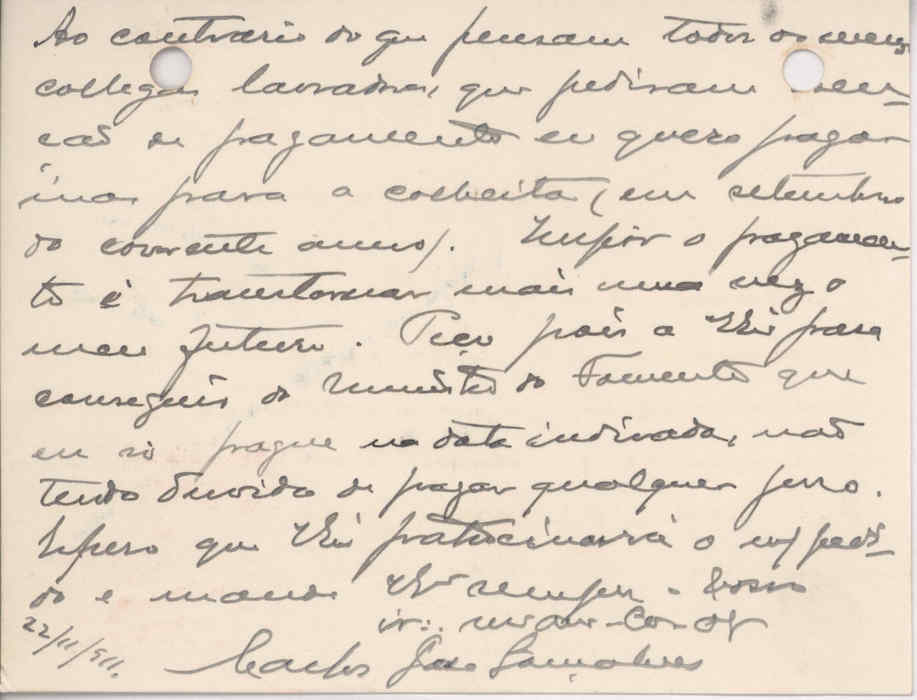 Ao contrario do que pensam todos os meus
collegas lavradores, que pediram isem-
ção de pagamento eu quero pagar
mas para a colheita (em setembro
do corrente anno). Impôr o pagamen-
to é transtornar mais uma vez o
meu futuro. Peço pois a para
conseguir do Ministro do Fomento que
eu só pague na data indicada, não
tendo duvida de pagar qualquer juro.
Espero que patrocinará o m/ pedi-
do e mande sempre
ir∴
22/11/911.
Carlos Gonçalves